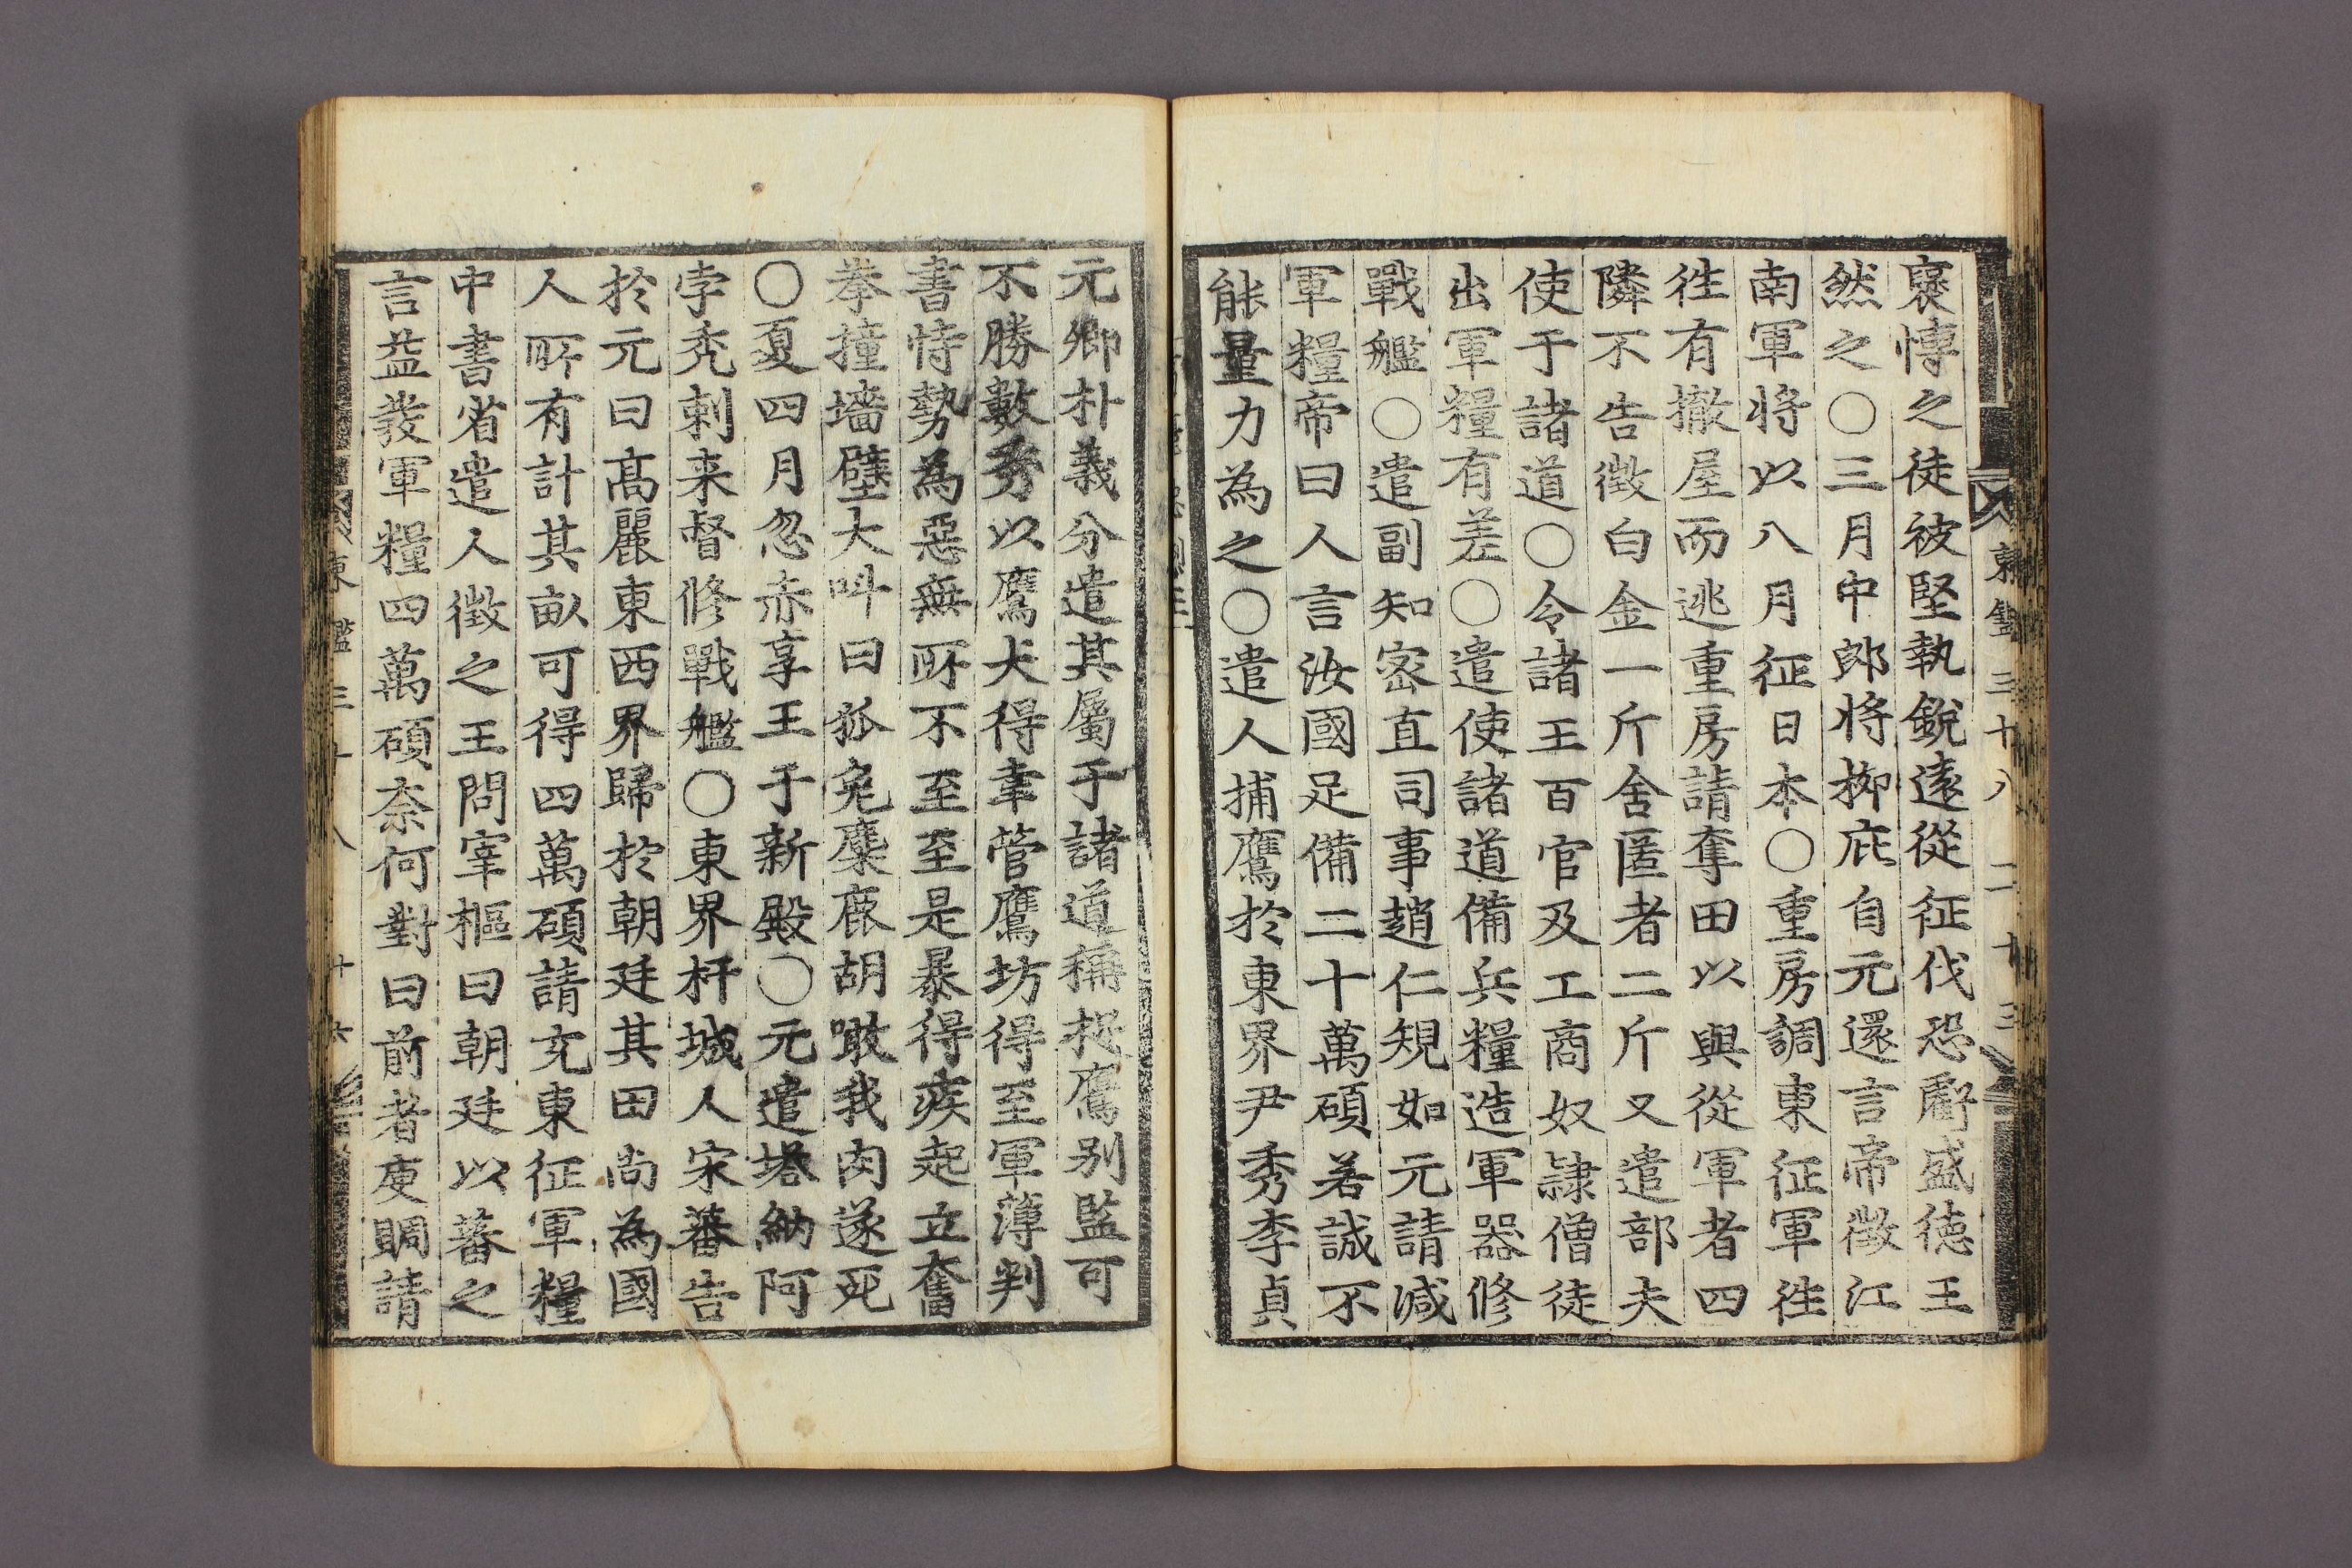 襃慱之徒被堅執銳遠從征伐恐虧盛德王
然之○三月中郎将柳庇自元還言帝徵江
南軍将以八月征日本○重房調東征軍徃
徃有撤屋而逃重房請奪田以與從軍者四
隣不告徵白金一斤舍匿者二斤又遣部夫
使于諸道○令諸王百官及工商奴隷僧徒
出軍糧有差○遣使諸道備兵糧造軍器修
戰艦○遣副知密直司事趙仁規如元請減
軍糧帝曰人言汝國足備二十萬碩若誠不
能量力為之○遣人捕鷹於東界尹秀李貞
元卿朴義分遣其屬于諸道稱捉鷹别監可
不勝數秀以鷹犬得幸管鷹坊得至軍簿判
書恃勢為惡無所不至至是暴得疾起立奮
拳撞墻壁大叫曰狐兔麋鹿胡噉我肉遂死
○夏四月忽赤享王于新殿○元遣塔納阿
孛禿剌来督修戰艦○東界杆城人宋蕃告
於元曰髙麗東西界歸於朝廷其田尚為國
人所有計其畝可得四萬碩請充東征軍糧
中書省遣人徵之王問宰樞曰朝廷以蕃之
言益發軍糧四萬碩奈何對曰前者更賙請
東鑑三十八 十六
東鑑三十八 二十三